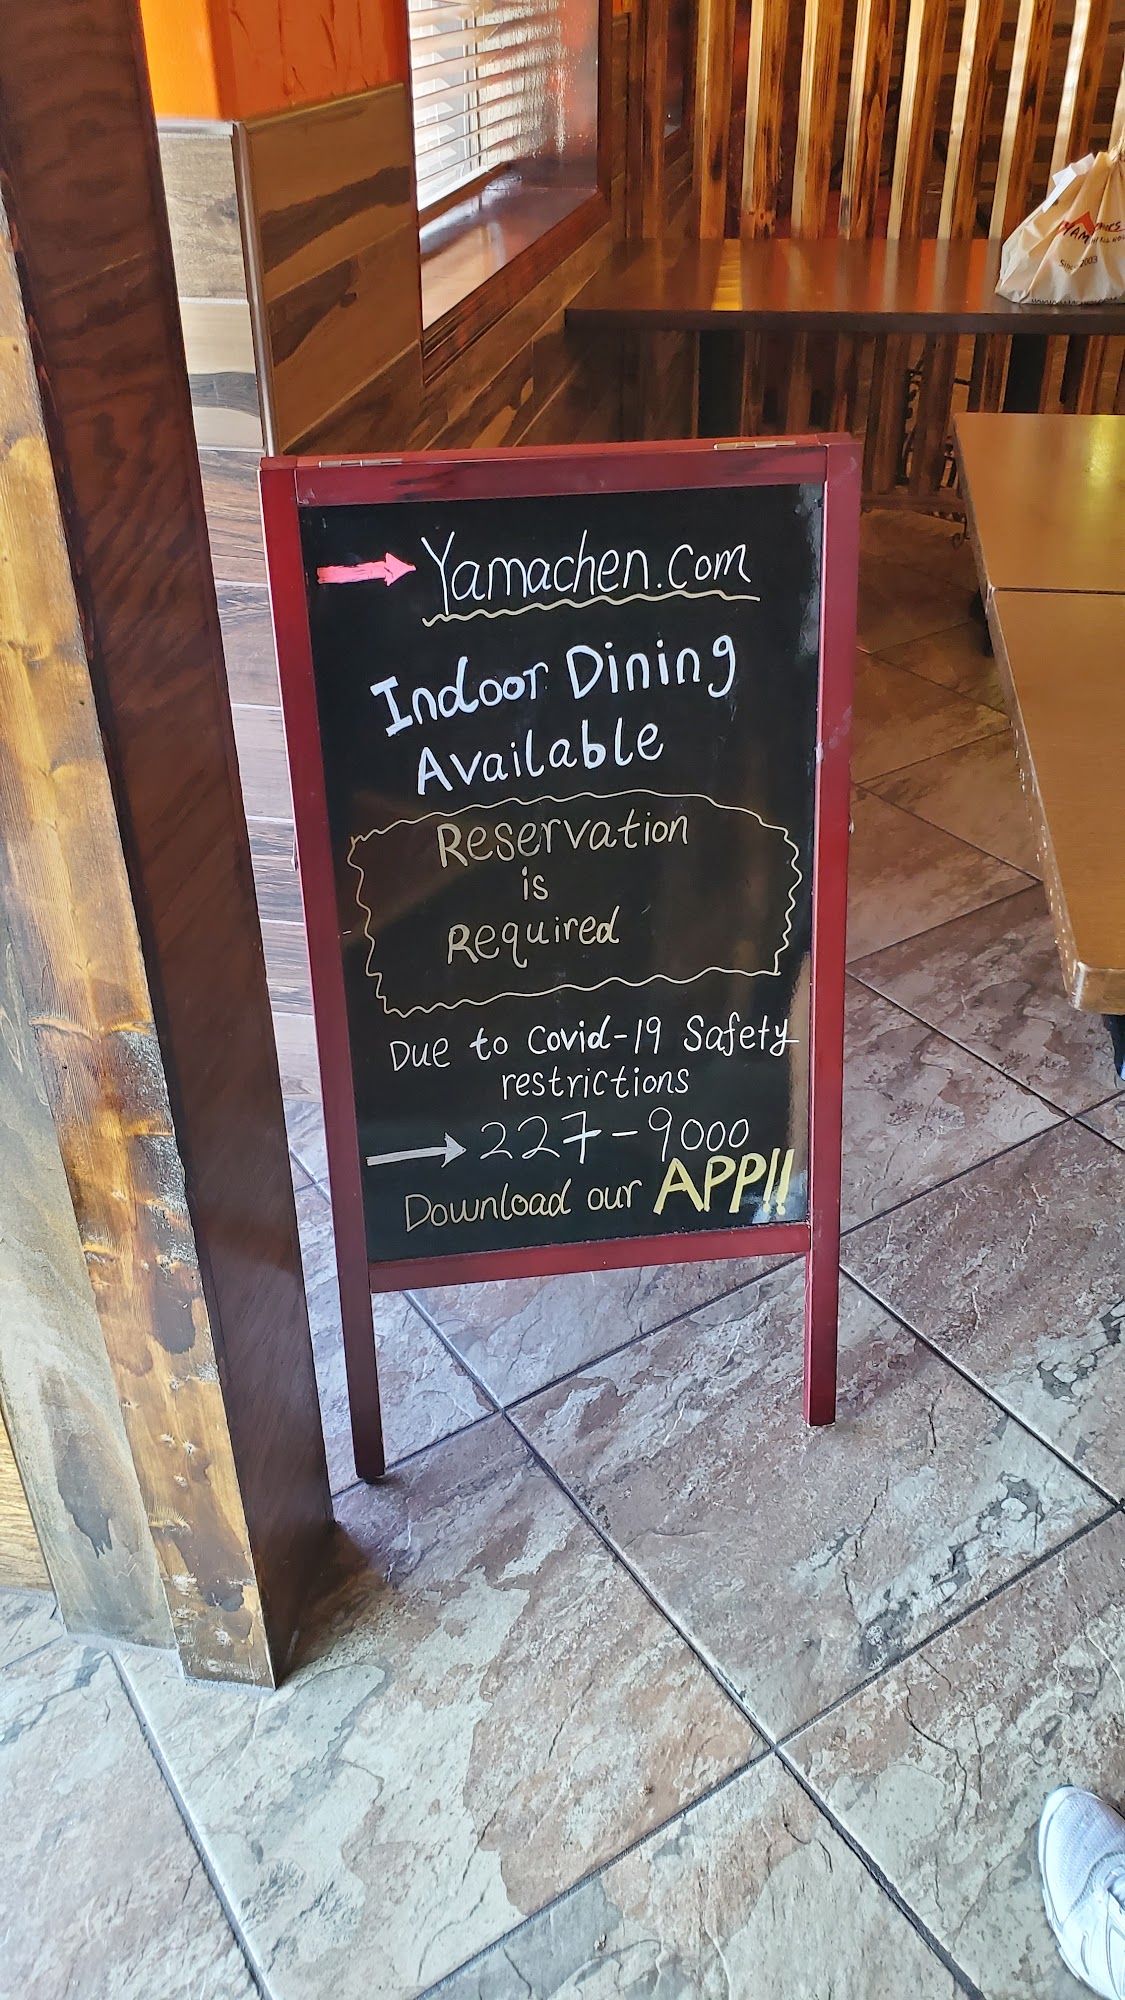 Yamachen.Com
Indoor Dining
Available
Reservation
is
Required
Due to Covid-19 Safety
restrictions
227-9000
Download our APP!!
Since 2003